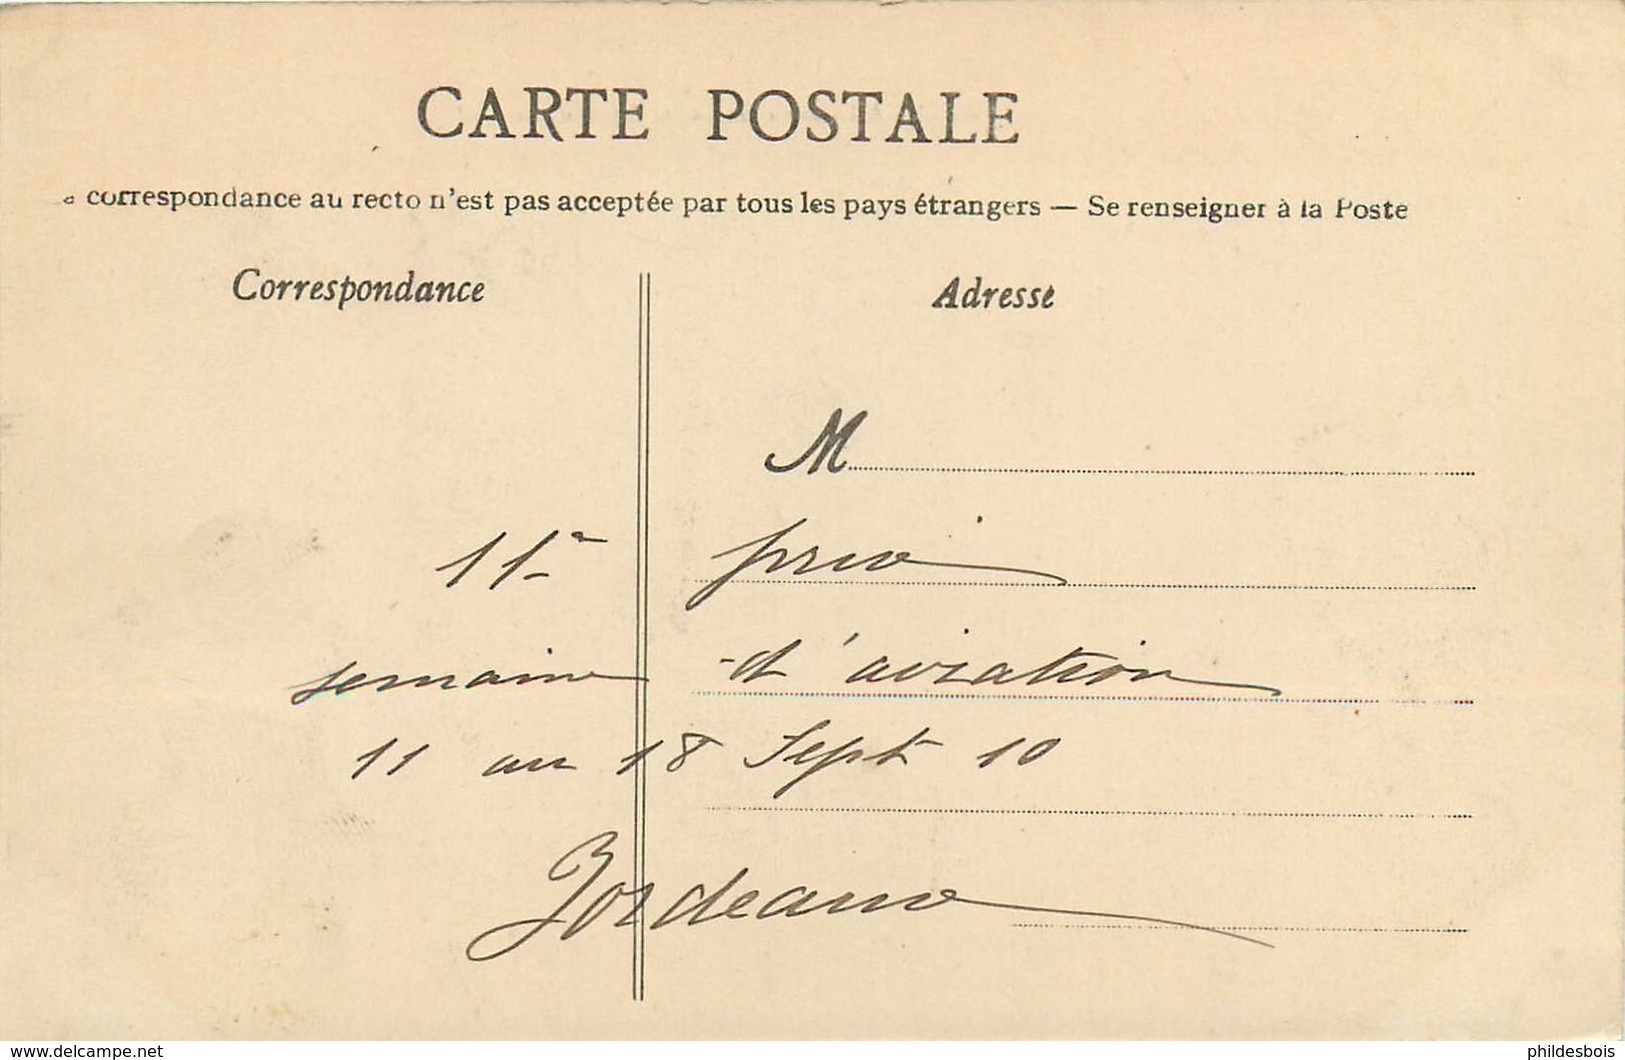 CARTE POSTALE
correspondance au recto n'est pas acceptée par tous les pays étrangers — Se renseigner à la Poste
Correspondance
Adresse
M
11e prix
semaine d'aviation
11 au 18 Sept 10
Bordeaux
www.delcampe.net
phildesbois